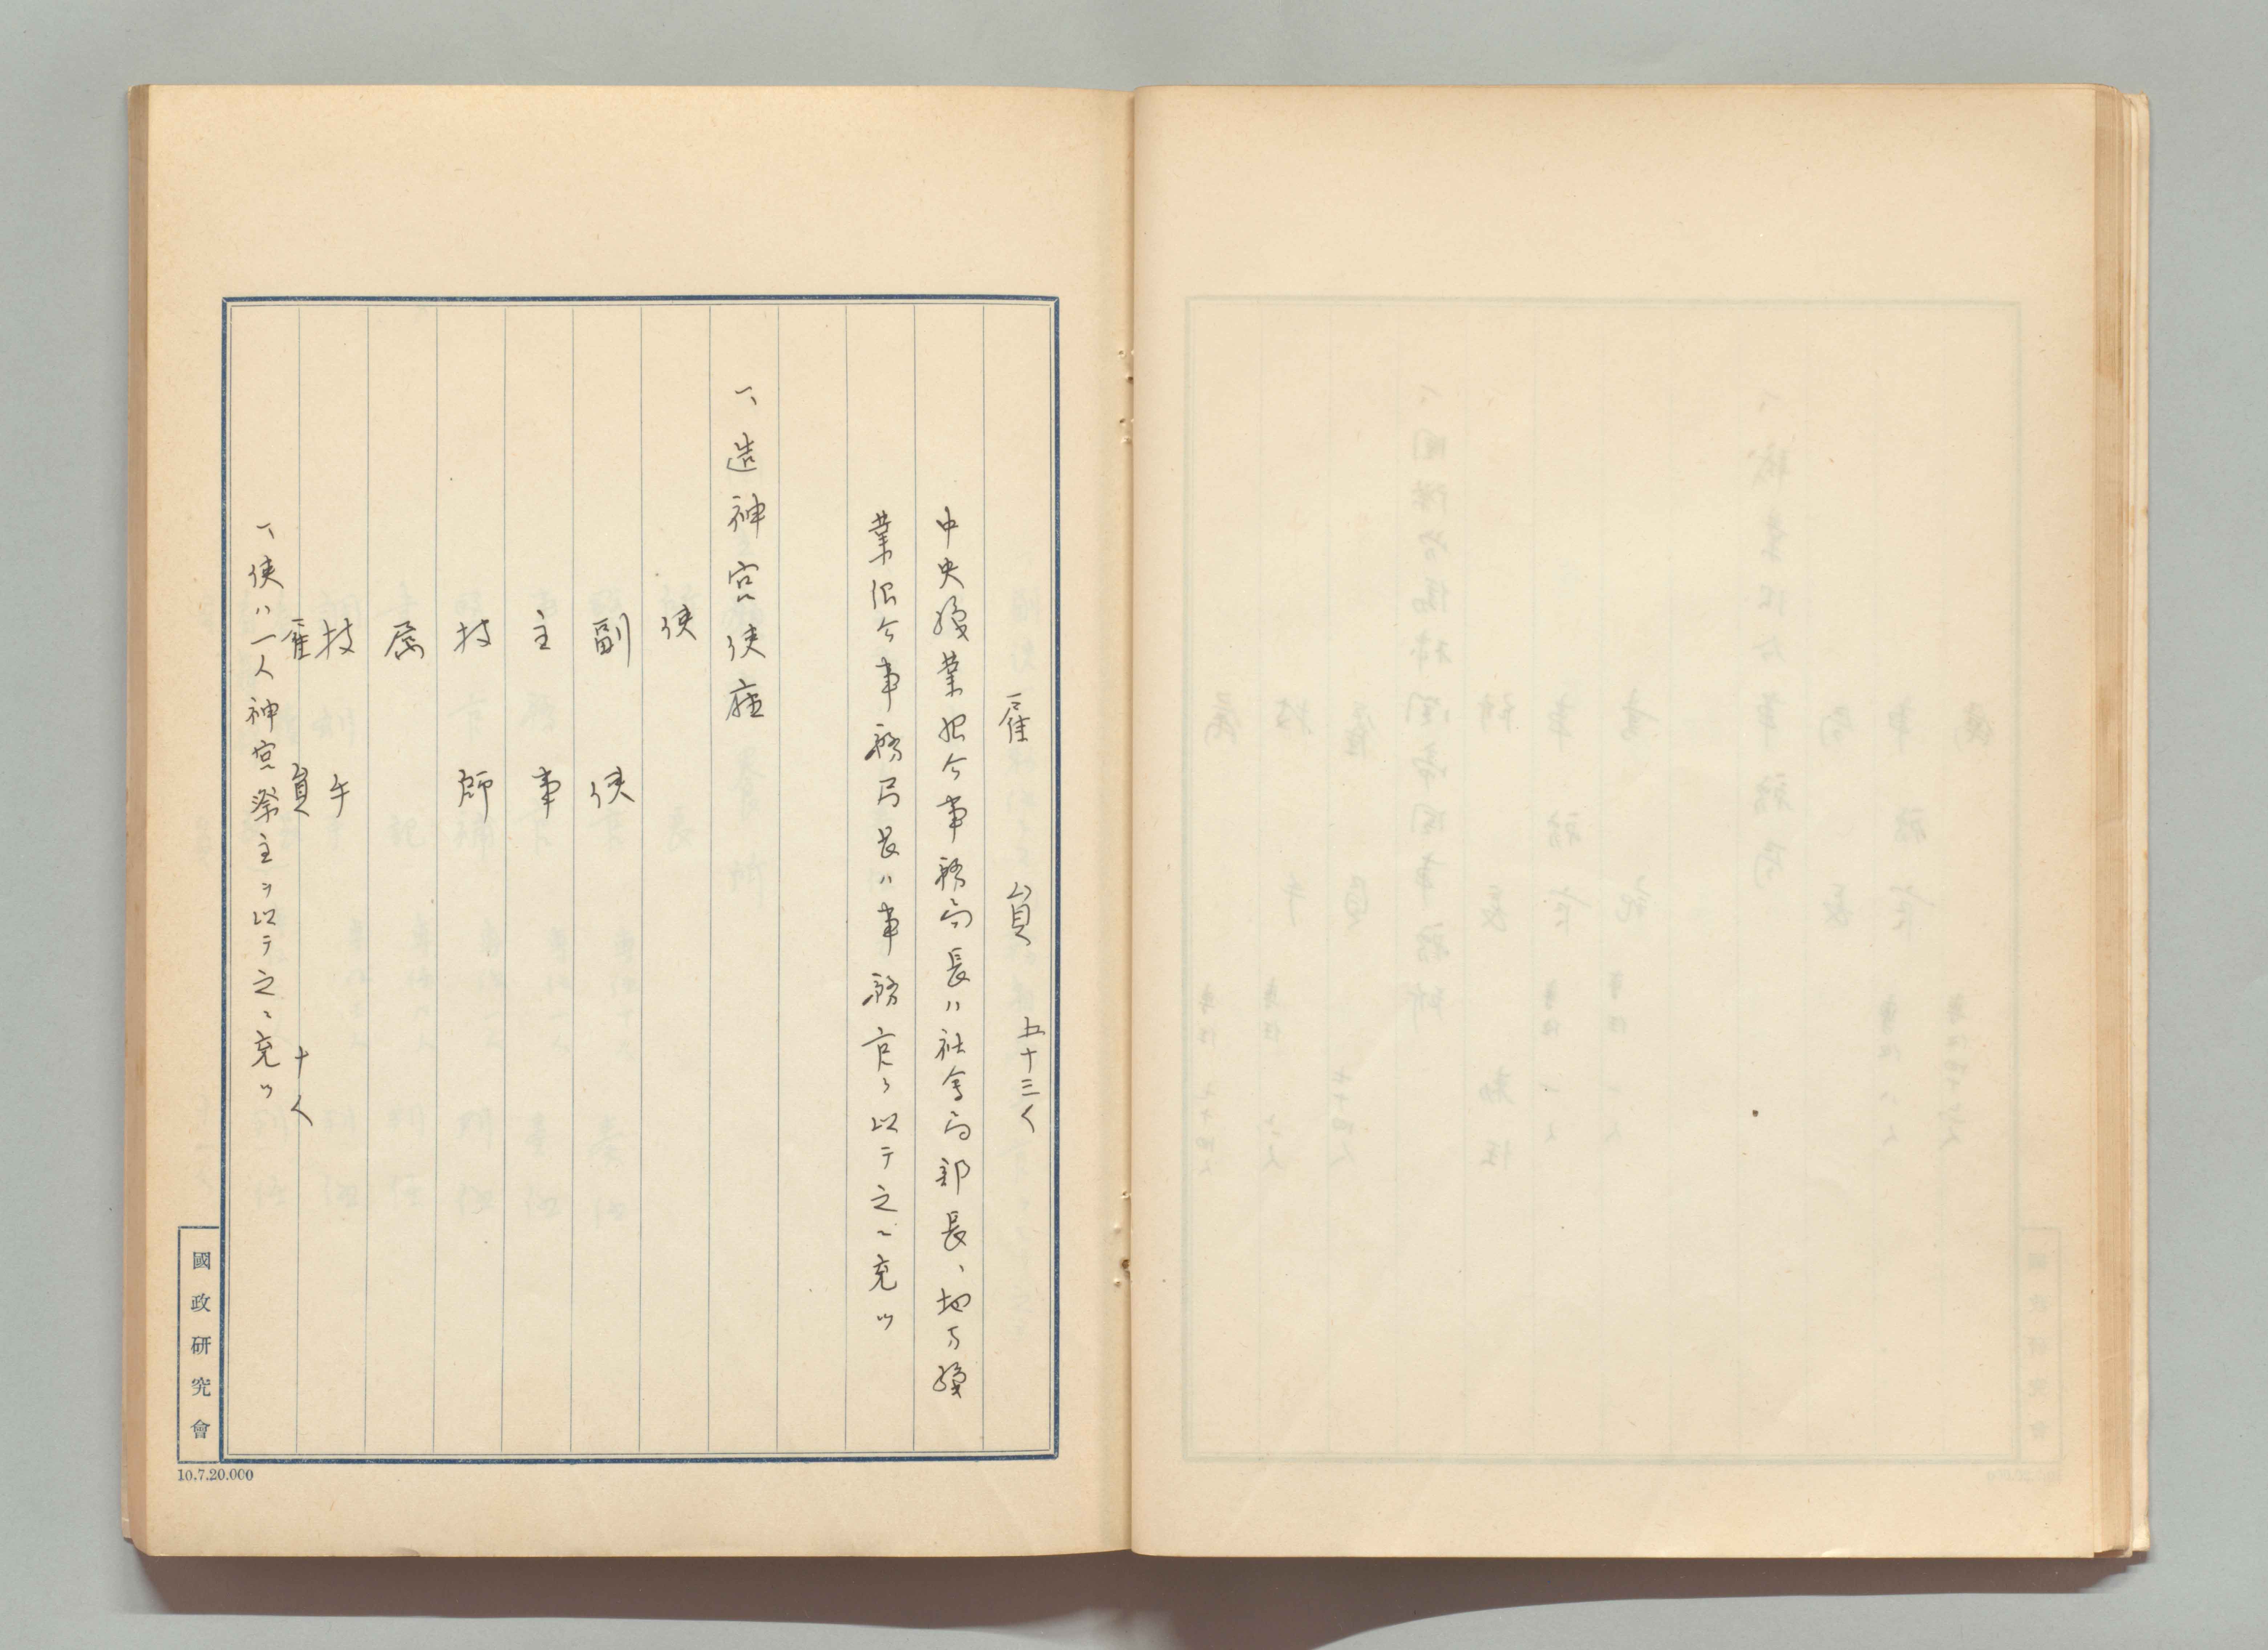 雇員 五十三人
中央職業紹介事務局長ハ社会局部長、地方職
業紹介事務局長ハ事務官ヲ以テ之ニ充ツ
一、造神宮使庁
使
副使
主事
技師
属
技手
雇員 十人
一、使ハ一人神宮祭主ヲ以テ之ニ充ツ
國政研究會
10.7.20.000